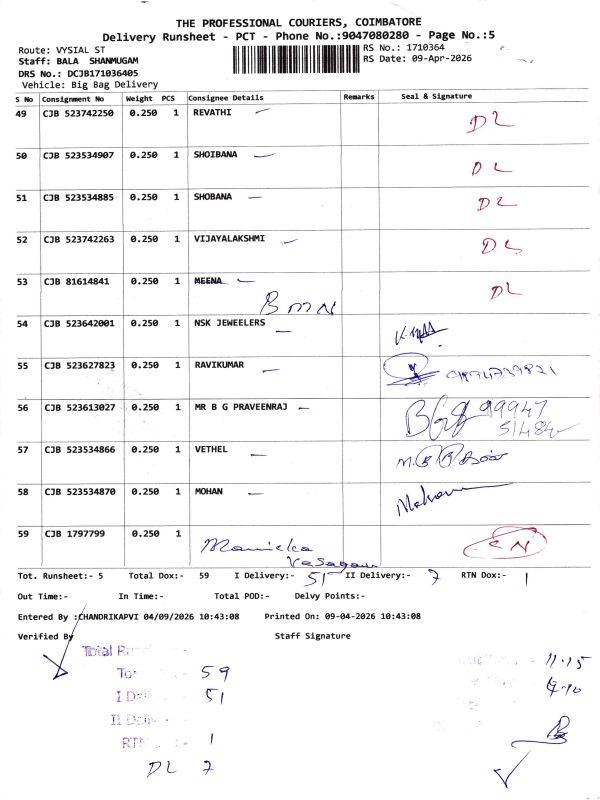 THE PROFESSIONAL COURIERS, COIMBATORE
Delivery Runsheet - PCT - Phone No.:9047080280 - Page No.:5
Route: VYSIAL ST
RS No.: 1710364
Staff: BALA SHANMUGAM
RS Date: 09-Apr-2026
DRS No.: DCJB171036405
Vehicle: Big Bag Delivery
S No Consignment No Weight PCS Consignee Details Remarks Seal & Signature
49 CJB 523742250 0.250 1 REVATHI DL
50 CJB 523534907 0.250 1 SHOIBANA DL
51 CJB 523534885 0.250 1 SHOBANA DL
52 CJB 523742263 0.250 1 VIJAYALAKSHMI DL
53 CJB 81614841 0.250 1 MEENA DL
BMN
54 CJB 523642001 0.250 1 NSK JEWEELERS
55 CJB 523627823 0.250 1 RAVIKUMAR
56 CJB 523613027 0.250 1 MR B G PRAVEENRAJ BG 99947
51484
57 CJB 523534866 0.250 1 VETHEL
58 CJB 523534870 0.250 1 MOHAN Mohan
59 CJB 1797799 0.250 1 Manicka
Vasagam
Tot. Runsheet:- 5 Total Dox:- 59 I Delivery:- 51 II Delivery:- 7 RTN Dox:- 1
Out Time:- In Time:- Total POD:- Delvy Points:-
Entered By :CHANDRIKAPVI 04/09/2026 10:43:08 Printed On: 09-04-2026 10:43:08
Verified By Staff Signature
Total
59 11:15
I 51
II
RTN 1
DL 7